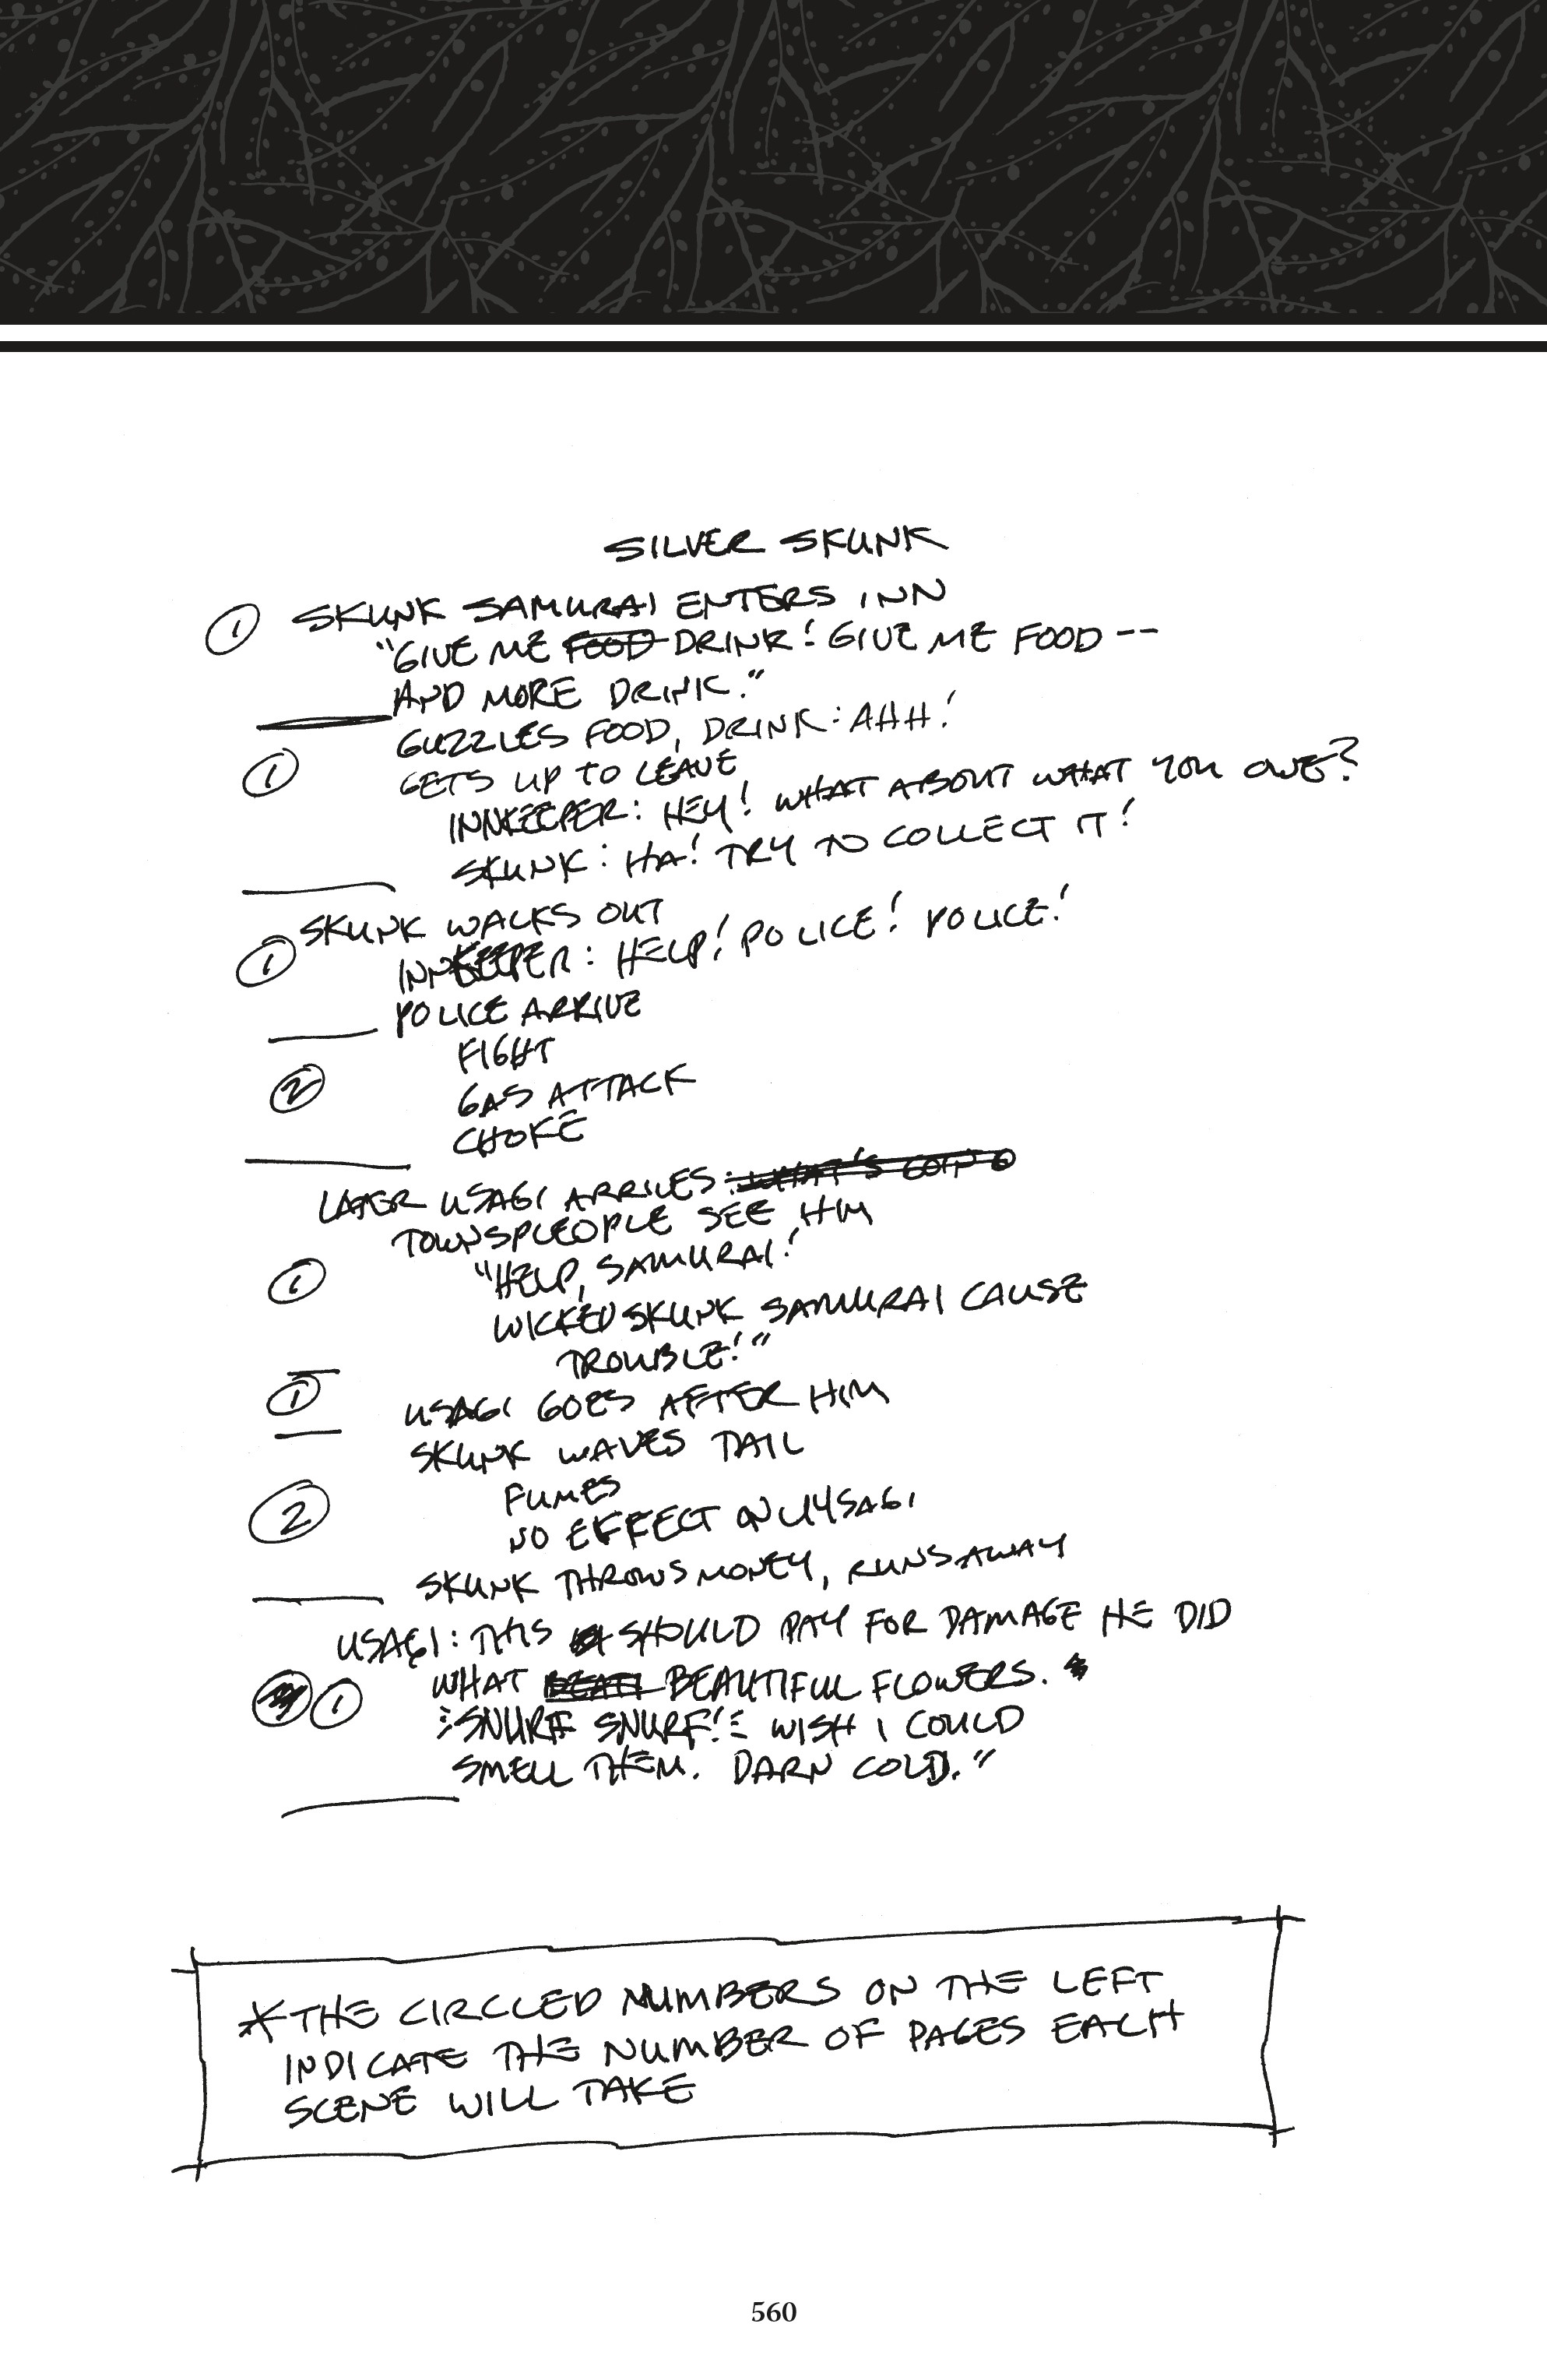 SILVER SKUNK
① SKUNK SAMURAI ENTERS INN
"GIVE ME FOOD DRINK! GIVE ME FOOD --
AND MORE DRINK."
GUZZLES FOOD, DRINK: AHH!
① GETS UP TO LEAVE
INNKEEPER: HEY! WHAT ABOUT WHAT YOU OWE?
SKUNK: HA! TRY TO COLLECT IT!
SKUNK WALKS OUT
① INNKEEPER: HELP! POLICE! POLICE!
POLICE ARRIVE
FIGHT
② GAS ATTACK
CHOKE
LATER USAGI ARRIVES: WHAT'S GOING
TOWNSPLEOPLE SEE HIM
① "HELP, SAMURAI!
WICKED SKUNK SAMURAI CAUSE
TROUBLE!"
① USAGI GOES AFTER HIM
SKUNK WAVES TAIL
② FUMES
NO EFFECT ON USAGI
SKUNK THROWS MONEY, RUNS AWAY
USAGI: THIS SHOULD PAY FOR DAMAGE HE DID
① WHAT BEATI BEAUTIFUL FLOWERS.
SNURF SNURF! WISH I COULD
SMELL THEM. DARN COLD."
*THE CIRCLED NUMBERS ON THE LEFT
INDICATE THE NUMBER OF PAGES EACH
SCENE WILL TAKE
560